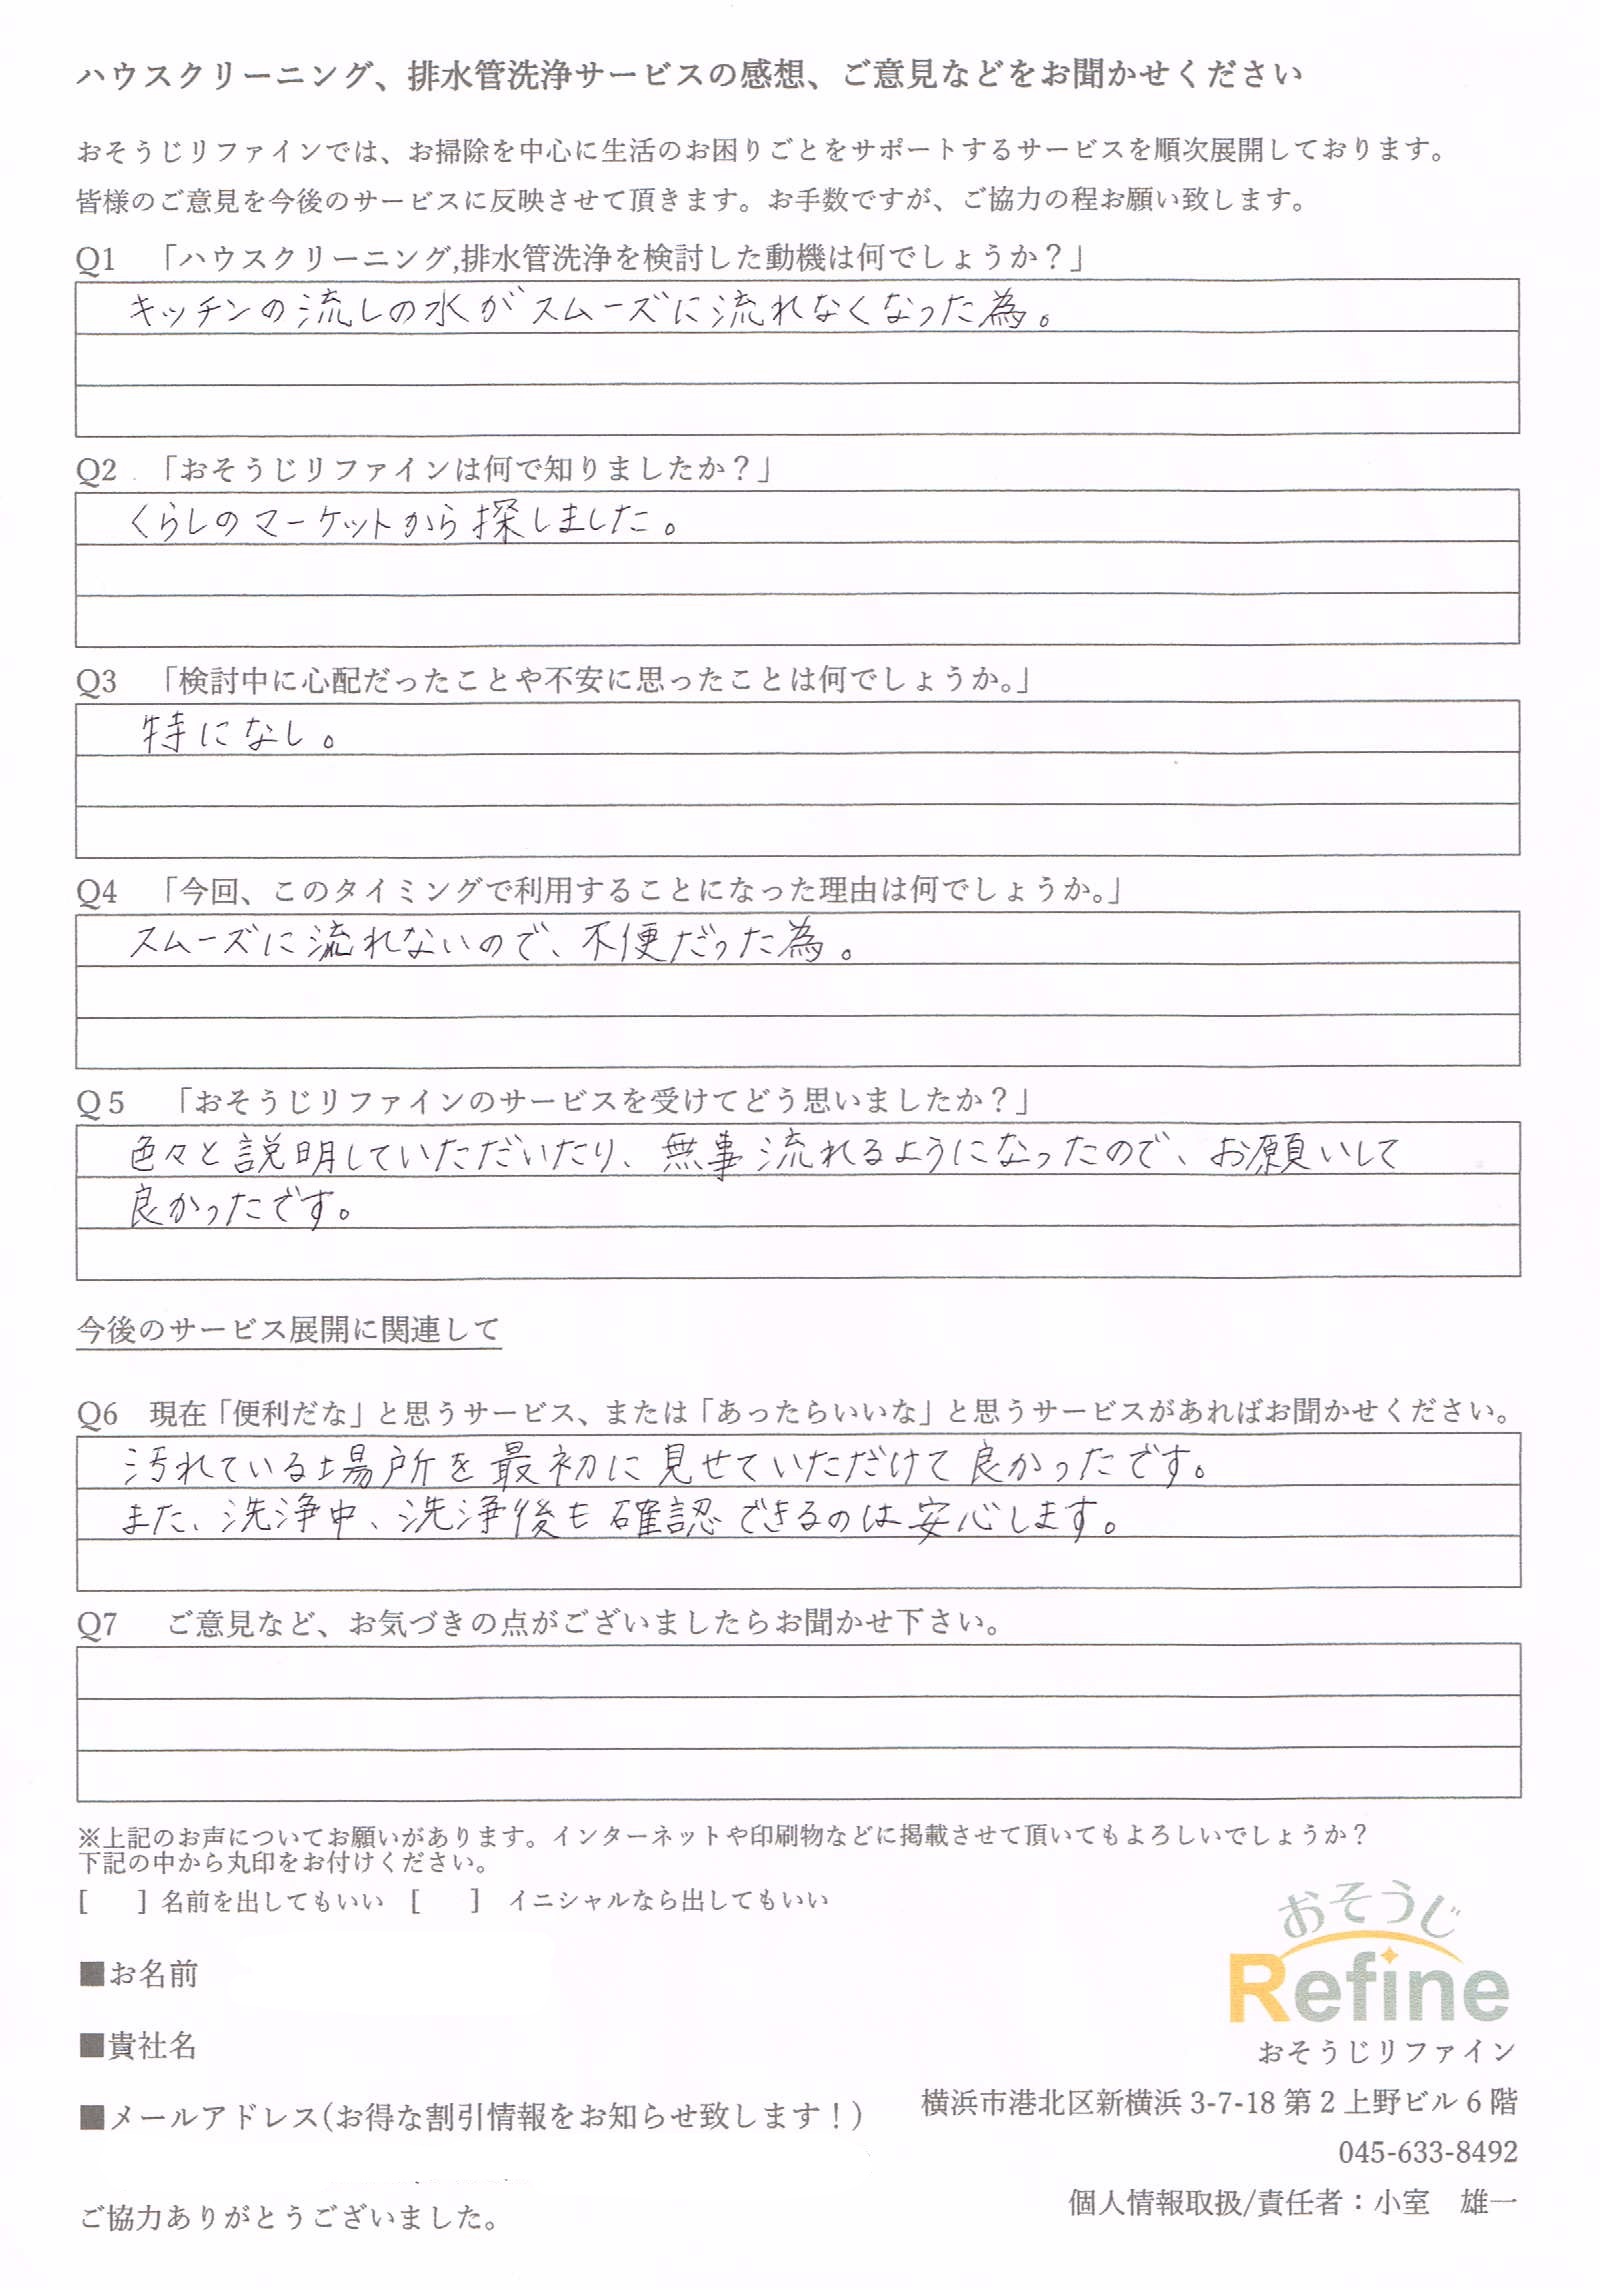 ハウスクリーニング、排水管洗浄サービスの感想、ご意見などをお聞かせください
おそうじリファインでは、お掃除を中心に生活のお困りごとをサポートするサービスを順次展開しております。
皆様のご意見を今後のサービスに反映させて頂きます。お手数ですが、ご協力の程お願い致します。
Q1 「ハウスクリーニング,排水管洗浄を検討した動機は何でしょうか？」
キッチンの流しの水がスムーズに流れなくなった為。
Q2 「おそうじリファインは何で知りましたか？」
くらしのマーケットから探しました。
Q3 「検討中に心配だったことや不安に思ったことは何でしょうか。」
特になし。
Q4 「今回、このタイミングで利用することになった理由は何でしょうか。」
スムーズに流れないので、不便だった為。
Q５ 「おそうじリファインのサービスを受けてどう思いましたか？」
色々と説明していただいたり、無事流れるようになったので、お願いして
良かったです。
今後のサービス展開に関連して
Q6 現在「便利だな」と思うサービス、または「あったらいいな」と思うサービスがあればお聞かせください。
汚れている場所を最初に見せていただけて良かったです。
また、洗浄中、洗浄後も確認できるのは安心します。
Q7 ご意見など、お気づきの点がございましたらお聞かせ下さい。
※上記のお声についてお願いがあります。インターネットや印刷物などに掲載させて頂いてもよろしいでしょうか？
下記の中から丸印をお付けください。
[ ] 名前を出してもいい [ ] イニシャルなら出してもいい
おそうじ
Refine
■お名前
■貴社名
おそうじリファイン
■メールアドレス(お得な割引情報をお知らせ致します！)
横浜市港北区新横浜 3-7-18 第 2 上野ビル 6 階
045-633-8492
個人情報取扱/責任者：小室 雄一
ご協力ありがとうございました。